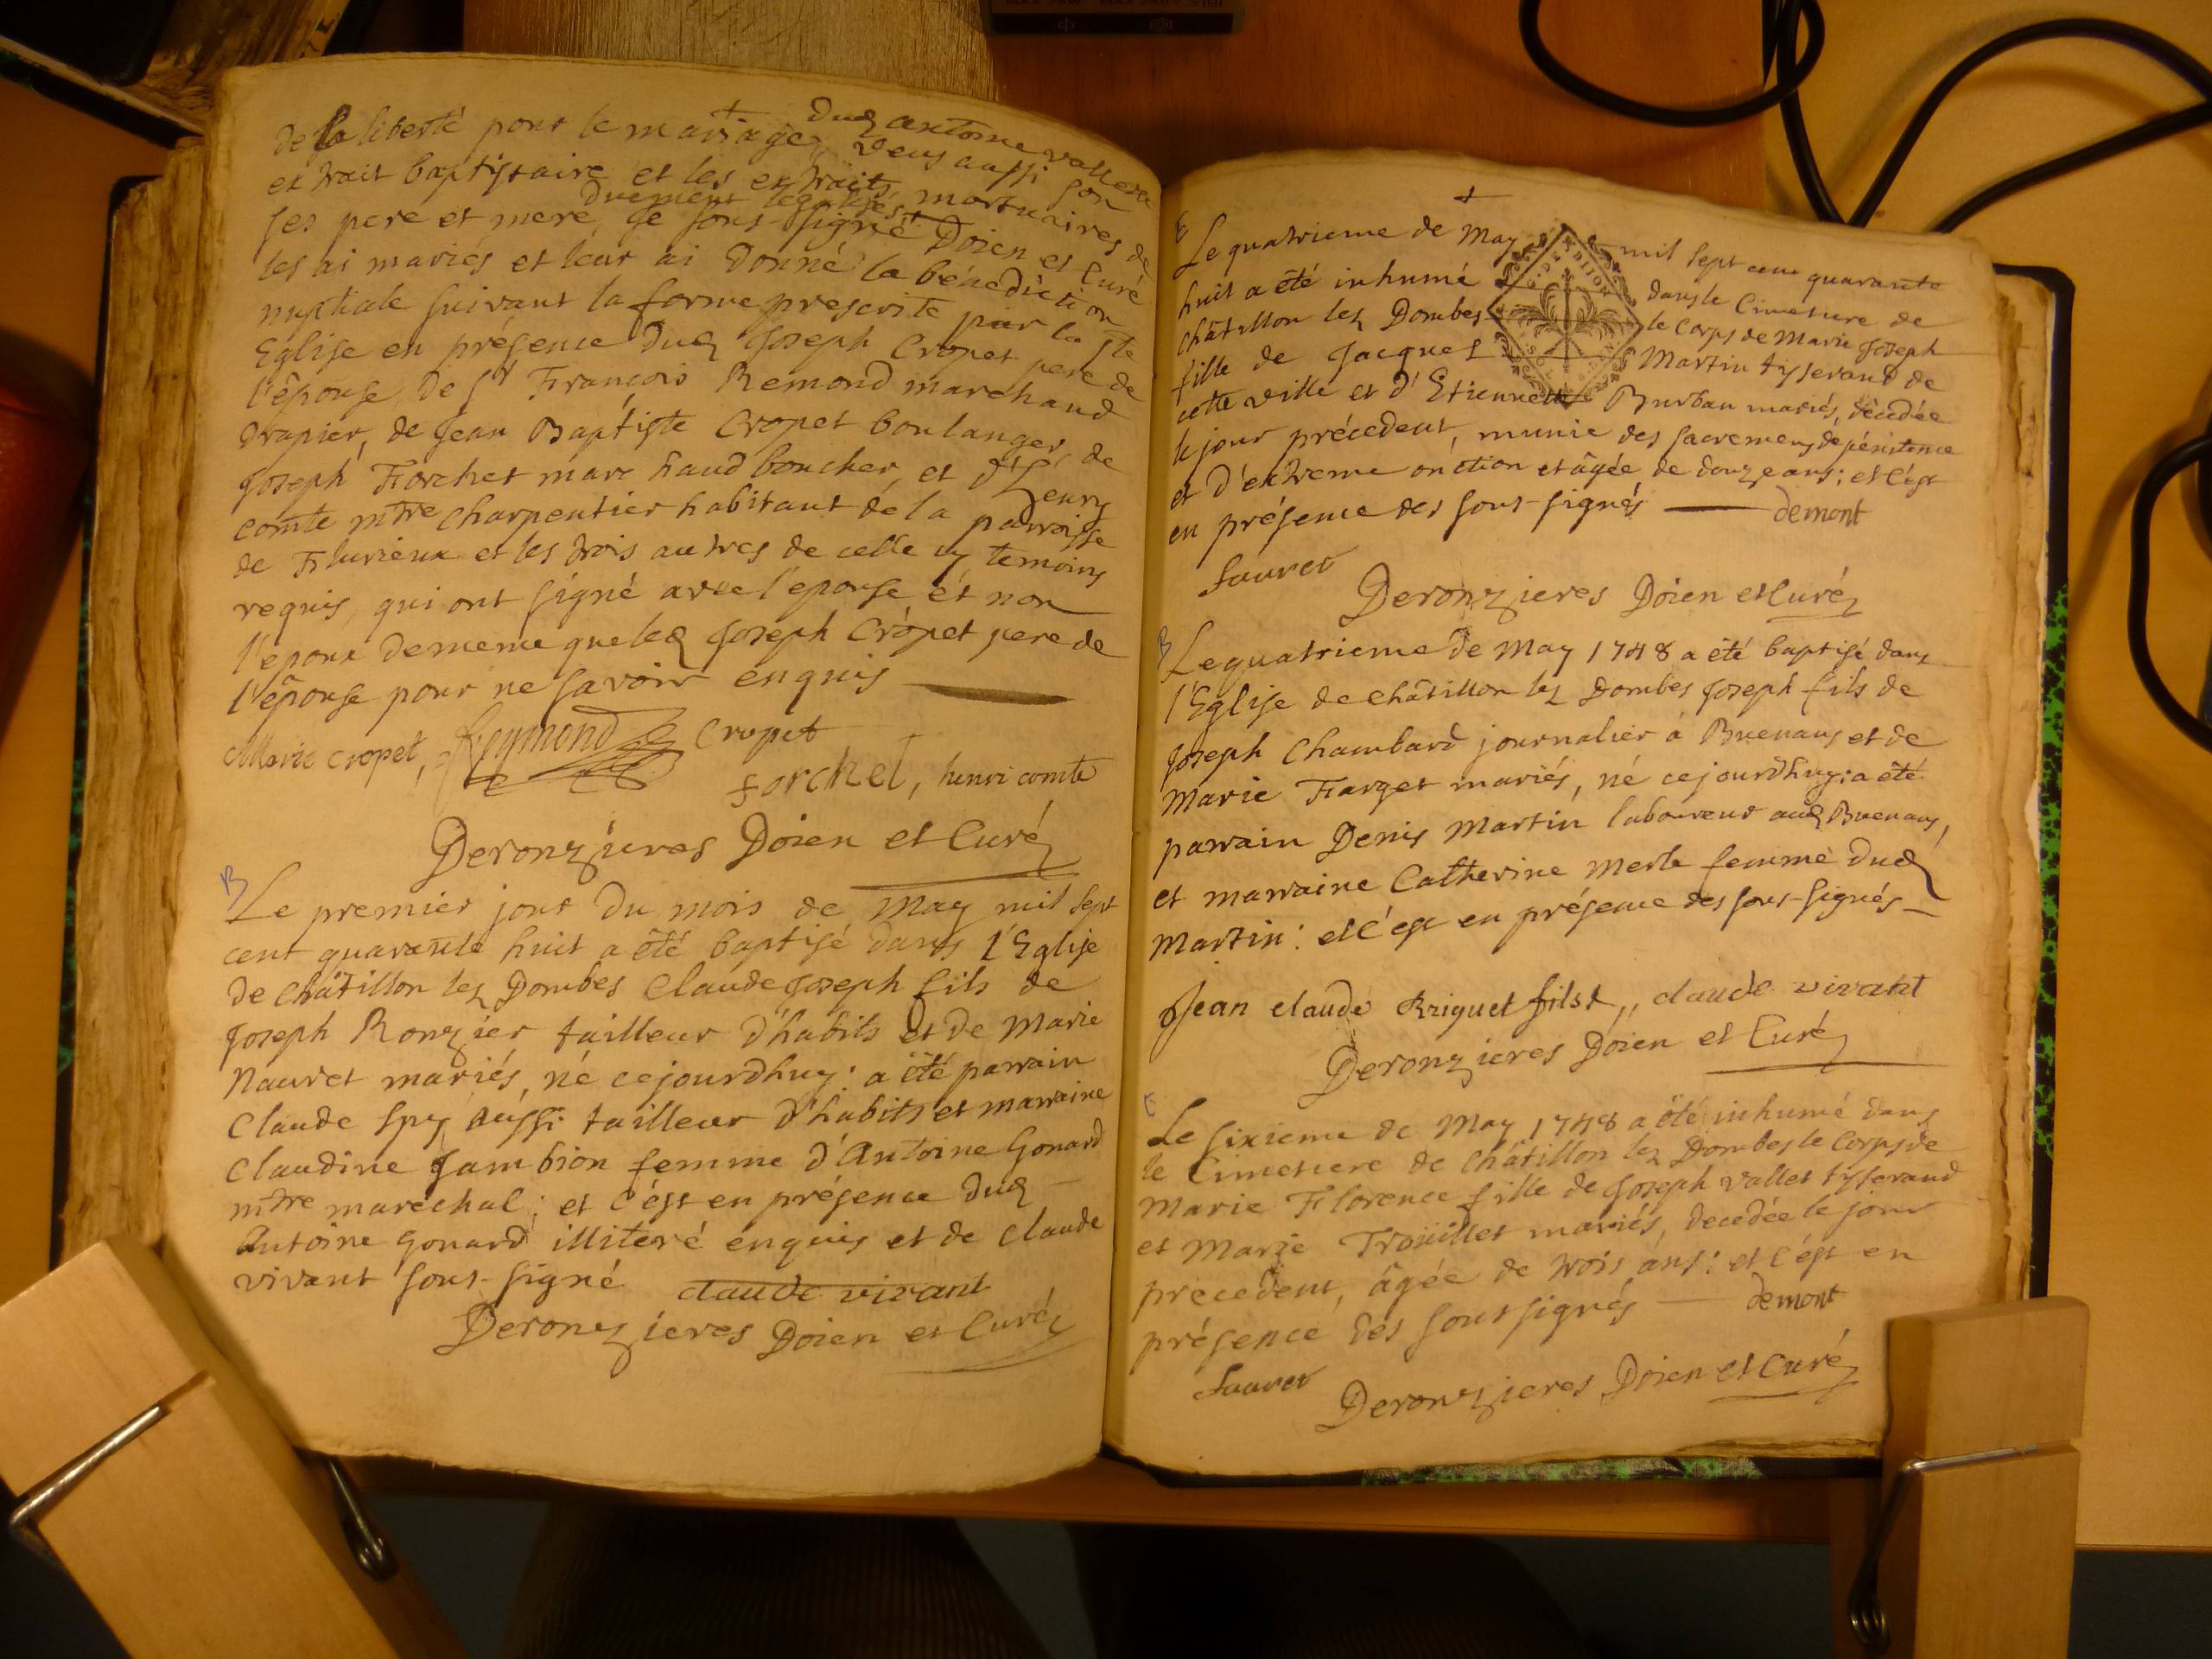 de sa liberté pour le mariage, dud Antoine
veus aussi son
extrait baptistaire et les extraits mortuaires de
ses pere et mere, duement legalisés, Je sous-signé Doien et Curé
les ai mariés et leur ai Donné la bénédiction
nuptiale suivant la forme prescrite par la Ste
Eglise en présence dud Joseph Cropet pere de
l'épouse, de Sr François Remond marchand
Drapier, de Jean Baptiste Cropet boulanger, de
Joseph Forchet marchand boucher, et d'henry
comte mtre charpentier habitant de la parroisse
de Flurieux et les trois autres de celle cy temoins
requis, qui ont signé avec l'epouse et non
l'epoux de meme que led Joseph Cropet pere de
l'épouse pour ne savoir enquis
Marie cropet, Reymond Cropet
forchet, henri comte
Deronzieres Doien et Curé
B
Le premier jour du mois de May mil sept
cent quarante huit a été baptisé dans l'Eglise
de Châtillon lez Dombes Claude Joseph fils de
Joseph Ronzier tailleur d'habits et de Marie
Nauret mariés, né cejourdhuy: a été parrain
Claude Spy aussi tailleur d'habits et marraine
Claudine Jambion femme d'Antoine Gonard
mtre maréchal; et c'ést en présence dud
Antoine Gonard illiteré enquis et de Claude
vivant sous-signé claude vivant
Deronzieres Doien et Curé
Le quatrieme de May mil sept cent quarante
huit a été inhumé dans le Cimetiere de
châtillon lez Dombes le Corps de Marie Joseph
fille de Jacques Martin tisserand de
cette ville et d'Etiennette Burban mariés, décedée
le jour précedent, munie des sacremens de pénitence
et d'extreme onction et âgée de douze ans; et c'ést
en présence des sous-signés demont
Sauret
Deronzieres Doien et Curé
B
Le quatrieme de May 1748 a été baptisé dans
l'Eglise de Châtillon lez Dombes Joseph fils de
Joseph Chambard journalier à Buenans et de
Marie Farget mariés, né cejourdhuy: a été
parrain Denis Martin laboureur aud Buenans,
et marraine Catherine Merle femme dud
Martin: et c'ést en présence des sous-signés
Jean claude Briguet fils, claude vivant
Deronzieres Doien et Curé
Le sixieme de May 1748 a été inhumé dans
le Cimetiere de Châtillon lez Dombes le Corps de
Marie Florence fille de Joseph Vallet tisserand
et Marie Troüillet mariés, decedée le jour
précedent, âgée de trois ans: et c'ést en
présence des sous signés demont
Sauret
Deronzieres Doien et Curé